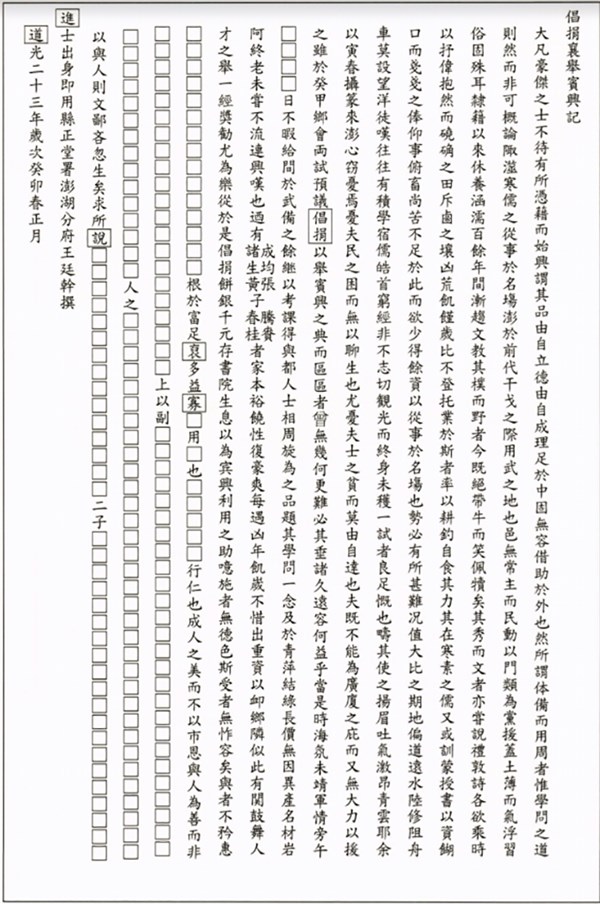 倡捐襄舉賓興記
大凡豪傑之士不待有所憑藉而始興謂其品由自立德由自成理足於中固無容借助於外也然所謂体備而用周者惟學問之道
則然而非可概論陬澨寒儒之從事於名場澎於前代干戈之際用武之地也邑無常主而民動以門類為黨援蓋土薄而氣浮習
俗固殊耳隸籍以來休養涵濡百餘年間漸趨文教其樸而野者今既絕帶牛而笑佩犢矣其秀而文者亦嘗說禮敦詩各欲乘時
以抒偉抱然而磽确之田斥鹵之壤凶荒飢饉歲比不登托業於斯者率以耕釣自食其力其在寒素之儒又或訓蒙授書以資餬
口而戔戔之俸仰事俯畜尚苦不足於此而欲少得餘資以從事於名場也勢必有所甚難况值大比之期地偏道遠水陸修阻舟
車莫設望洋徒嘆往往有積學宿儒皓首窮經非不志切觀光而終身未穫一試者良足慨也疇其使之揚眉吐氣激昂青雲耶余
以寅春攝篆來澎心竊憂焉憂夫民之困而無以聊生也尤憂夫士之貧而莫由自達也夫既不能為廣廈之庇而又無大力以援
之雖於癸甲鄉會兩試預議倡捐以舉賓興之典而區區者曾無幾何更難必其垂諸久遠容何益乎當是時海氛未靖軍情旁午
□□□□日不暇給間於武備之餘繼以考課得與都人士相周旋為之品題其學問一念及於青萍結綠長價無因異產名材岩
阿終老未嘗不流連興嘆也迺有成均張騰賚諸生黃子春桂者家本裕饒性復豪爽每遇凶年飢歲不惜出重資以卹鄉隣似此有関鼓舞人
才之舉一經獎勸尤為樂從於是倡捐餅銀千元存書院生息以為賓興利用之助噫施者無德色斯受者無怍容矣與者不矜惠
□□□□□□□□□□□根於富足裒多益寡□用□也□□□□□行仁也成人之美而不以市恩與人為善而非
□□□□□□□□□□□□□□□上以副□□□□□□□□□□□□□□□□□□□□
□□□□□□□□□□人之□□□□□□□□□□□□□□□□□□□□□□□□□□
以與人則文鄙吝忽生矣求所說□□□□□□□□□□□二子□□□□□□□□□□□□□□□
進士出身即用縣正堂署澎湖分府王廷幹撰
道光二十三年歲次癸卯春正月